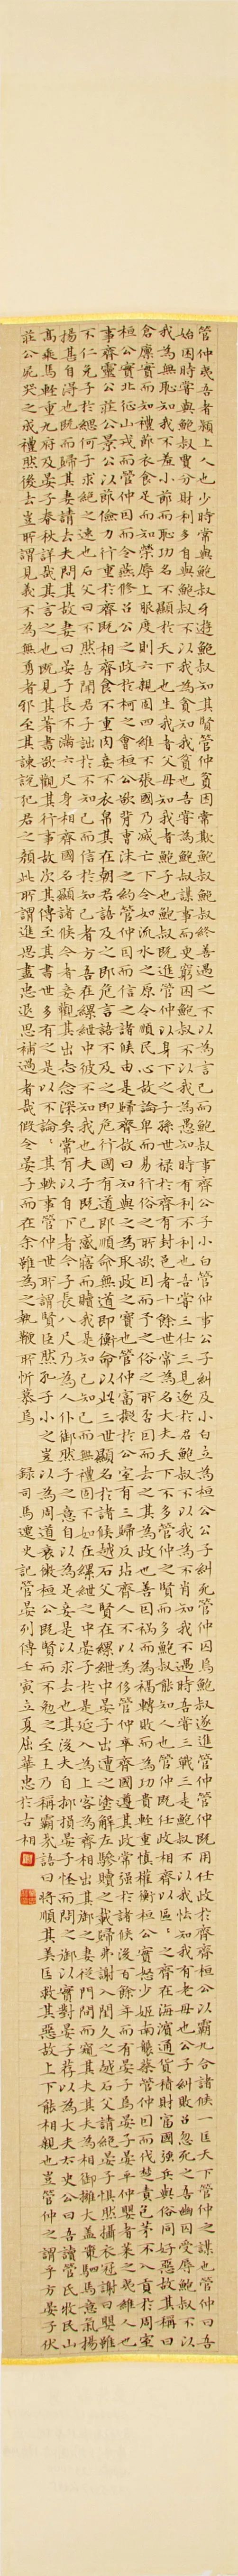 管仲夷吾者潁上人也少時常與鮑叔牙遊鮑叔知其賢管仲貧困常欺鮑叔鮑叔終善遇之不以為言已而鮑叔事齊公子小白管仲事公子糾及小白立為桓公公子糾死管仲囚焉鮑叔遂進管仲管仲既用任政於齊齊桓公以霸九合諸侯一匡天下管仲之謀也管仲曰吾
始困時嘗與鮑叔賈分財利多自與鮑叔不以我為貪知我貧也吾嘗為鮑叔謀事而更窮困鮑叔不以我為愚知時有利不利也吾嘗三仕三見逐於君鮑叔不以我為不肖知我不遇時吾嘗三戰三走鮑叔不以我怯知我有老母也公子糾敗召忽死之吾幽囚受辱鮑叔不以
我為無恥知我不羞小節而恥功名不顯於天下也生我者父母知我者鮑子也鮑叔既進管仲以身下之子孫世祿於齊有封邑者十餘世常為名大夫天下不多管仲之賢而多鮑叔能知人也管仲既任政相齊以區〻之齊在海濱通貨積財富國強兵與俗同好惡故其稱曰
倉廩實而知禮節衣食足而知榮辱上服度則六親固四維不張國乃滅亡下令如流水之原令順民心故論卑而易行俗之所欲因而予之俗之所否因而去之其為政也善因禍而為福轉敗而為功貴輕重慎權衡桓公實怒少姬南襲蔡管仲因而伐楚責包茅不入貢於周室
桓公實北征山戎而管仲因而令燕修召公之政於柯之會桓公欲背曹沫之約管仲因而信之諸侯由是歸齊故曰知與之為取政之寶也管仲富擬於公室有三歸反坫齊人不以為侈管仲卒齊國遵其政常強於諸侯後百餘年而有晏子焉晏子平仲嬰者萊之夷維人也
事齊靈公莊公景公以節儉力行重於齊既相齊食不重肉妾不衣帛其在朝君語及之即危言語不及之即危行國有道即順命無道即衡命以此三世顯名於諸侯越石父賢在縲紲中晏子出遭之塗解左驂贖之載歸弗謝入閨久之越石父請絕晏子懼然攝衣冠謝曰嬰雖
不仁免子於緦何子求絕之速也石父曰不然吾聞君子詘於不知己而信於知己者方吾在縲紲中彼不知我也夫子既已感寤而贖我是知己知己而無禮固不如在縲紲之中晏子於是延入為上客晏子為齊相出其御之妻從門間而窺其夫其夫為相御擁大蓋策駟馬意氣揚
揚甚自得也既而歸其妻請去夫問其故妻曰晏子長不滿六尺身相齊國名顯諸侯今者妾觀其出志念深矣常有以自下者今子長八尺乃為人仆御然子之意自以為足妾是以求去也其後夫自抑損晏子怪而問之御以實對晏子薦以為大夫太史公曰吾讀管氏牧民山
高乘馬輕重九府及晏子春秋詳哉其言之也既見其著書欲觀其行事故次其傳至其書世多有之是以不論〻其軼事管仲世所謂賢臣然孔子小之豈以為周道衰微桓公既賢而不勉之至王乃稱霸哉語曰將順其美匡救其惡故上下能相親也豈管仲之謂乎方晏子伏
莊公屍哭之成禮然後去豈所謂見義不為無勇者邪至其諫說犯君之顏此所謂進思盡忠退思補過者哉假令晏子而在余雖為之執鞭所忻慕焉 錄司馬遷史記管晏列傳壬寅立夏屈華忠於古相